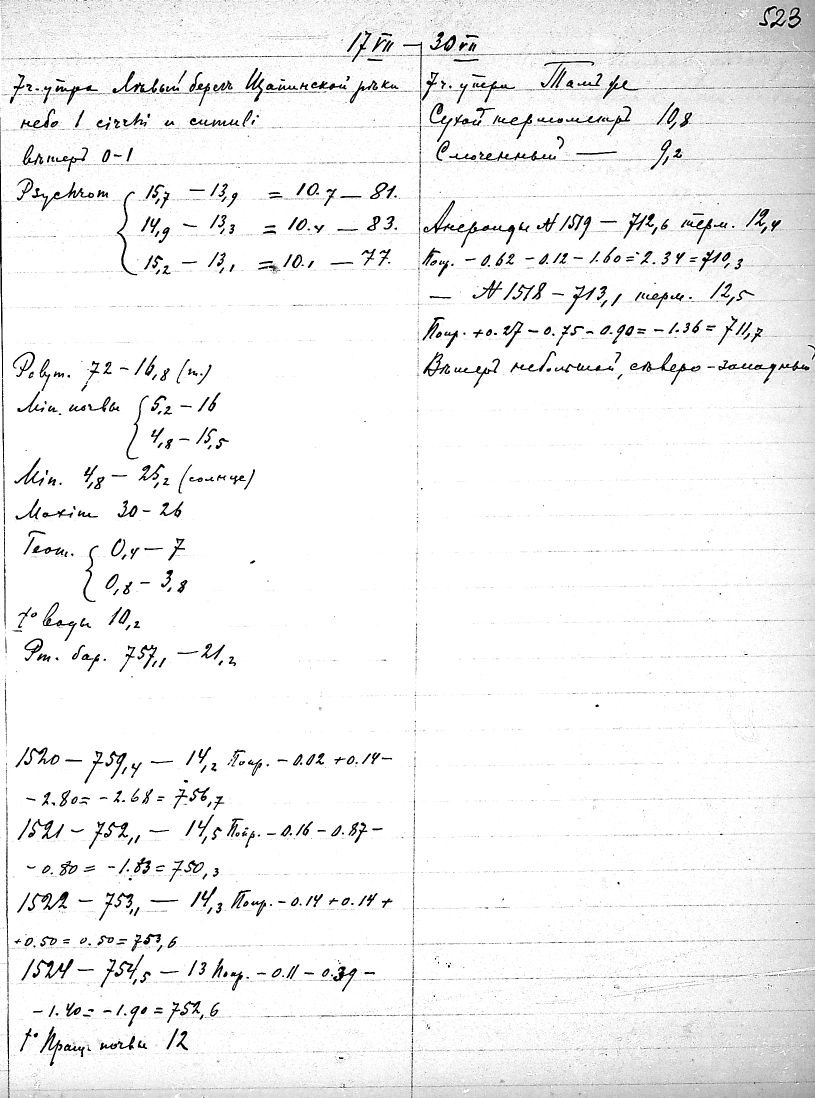 523
17 VII — 30 VII
7 ч. утра Лѣвый берегъ Щапинской рѣки
небо 1 cirrhi и cumuli
вѣтеръ 0-1
Psychrom { 15,7 — 13,9 = 10.7 — 81.
14,9 — 13,3 = 10.4 — 83.
15,2 — 13,1 = 10.1 — 77.
72 — 16,8 (т.)
Min. почвы { 5,2 — 16
4,8 — 15,5
Min. 4,8 — 25,2 (солнце)
Maxim 30 - 26
Геот. { 0,4 — 7
0,8 — 3,8
t° воды 10,2
Рт. бар. 757,1 — 21,2
1520 — 759,4 — 14,2 Попр. - 0.02 + 0.14 -
- 2.80 = - 2.68 = 756,7
1521 - 752,1 — 14,5 Попр. - 0.16 - 0.87 -
- 0.80 = - 1.83 = 750,3
1522 — 753,1 — 14,3 Попр. - 0.14 + 0.14 +
+ 0.50 = 0.50 = 753,6
1524 — 754,5 — 13 Попр. - 0.11 - 0.39 -
- 1.40 = - 1.90 = 752,6
t° Пращ. почвы 12
7 ч. утра Тамъ же
Сухой термометръ 10,8
Смоченный — 9,2
Анероиды № 1519 — 712,6 терм. 12,4
Попр. - 0.62 - 0.12 - 1.60 = 2.34 = 710,3
— № 1518 — 713,1 терм. 12,5
Попр. + 0.27 - 0.75 - 0.90 = - 1.36 = 711,7
Вѣтеръ небольшой, сѣверо-западный